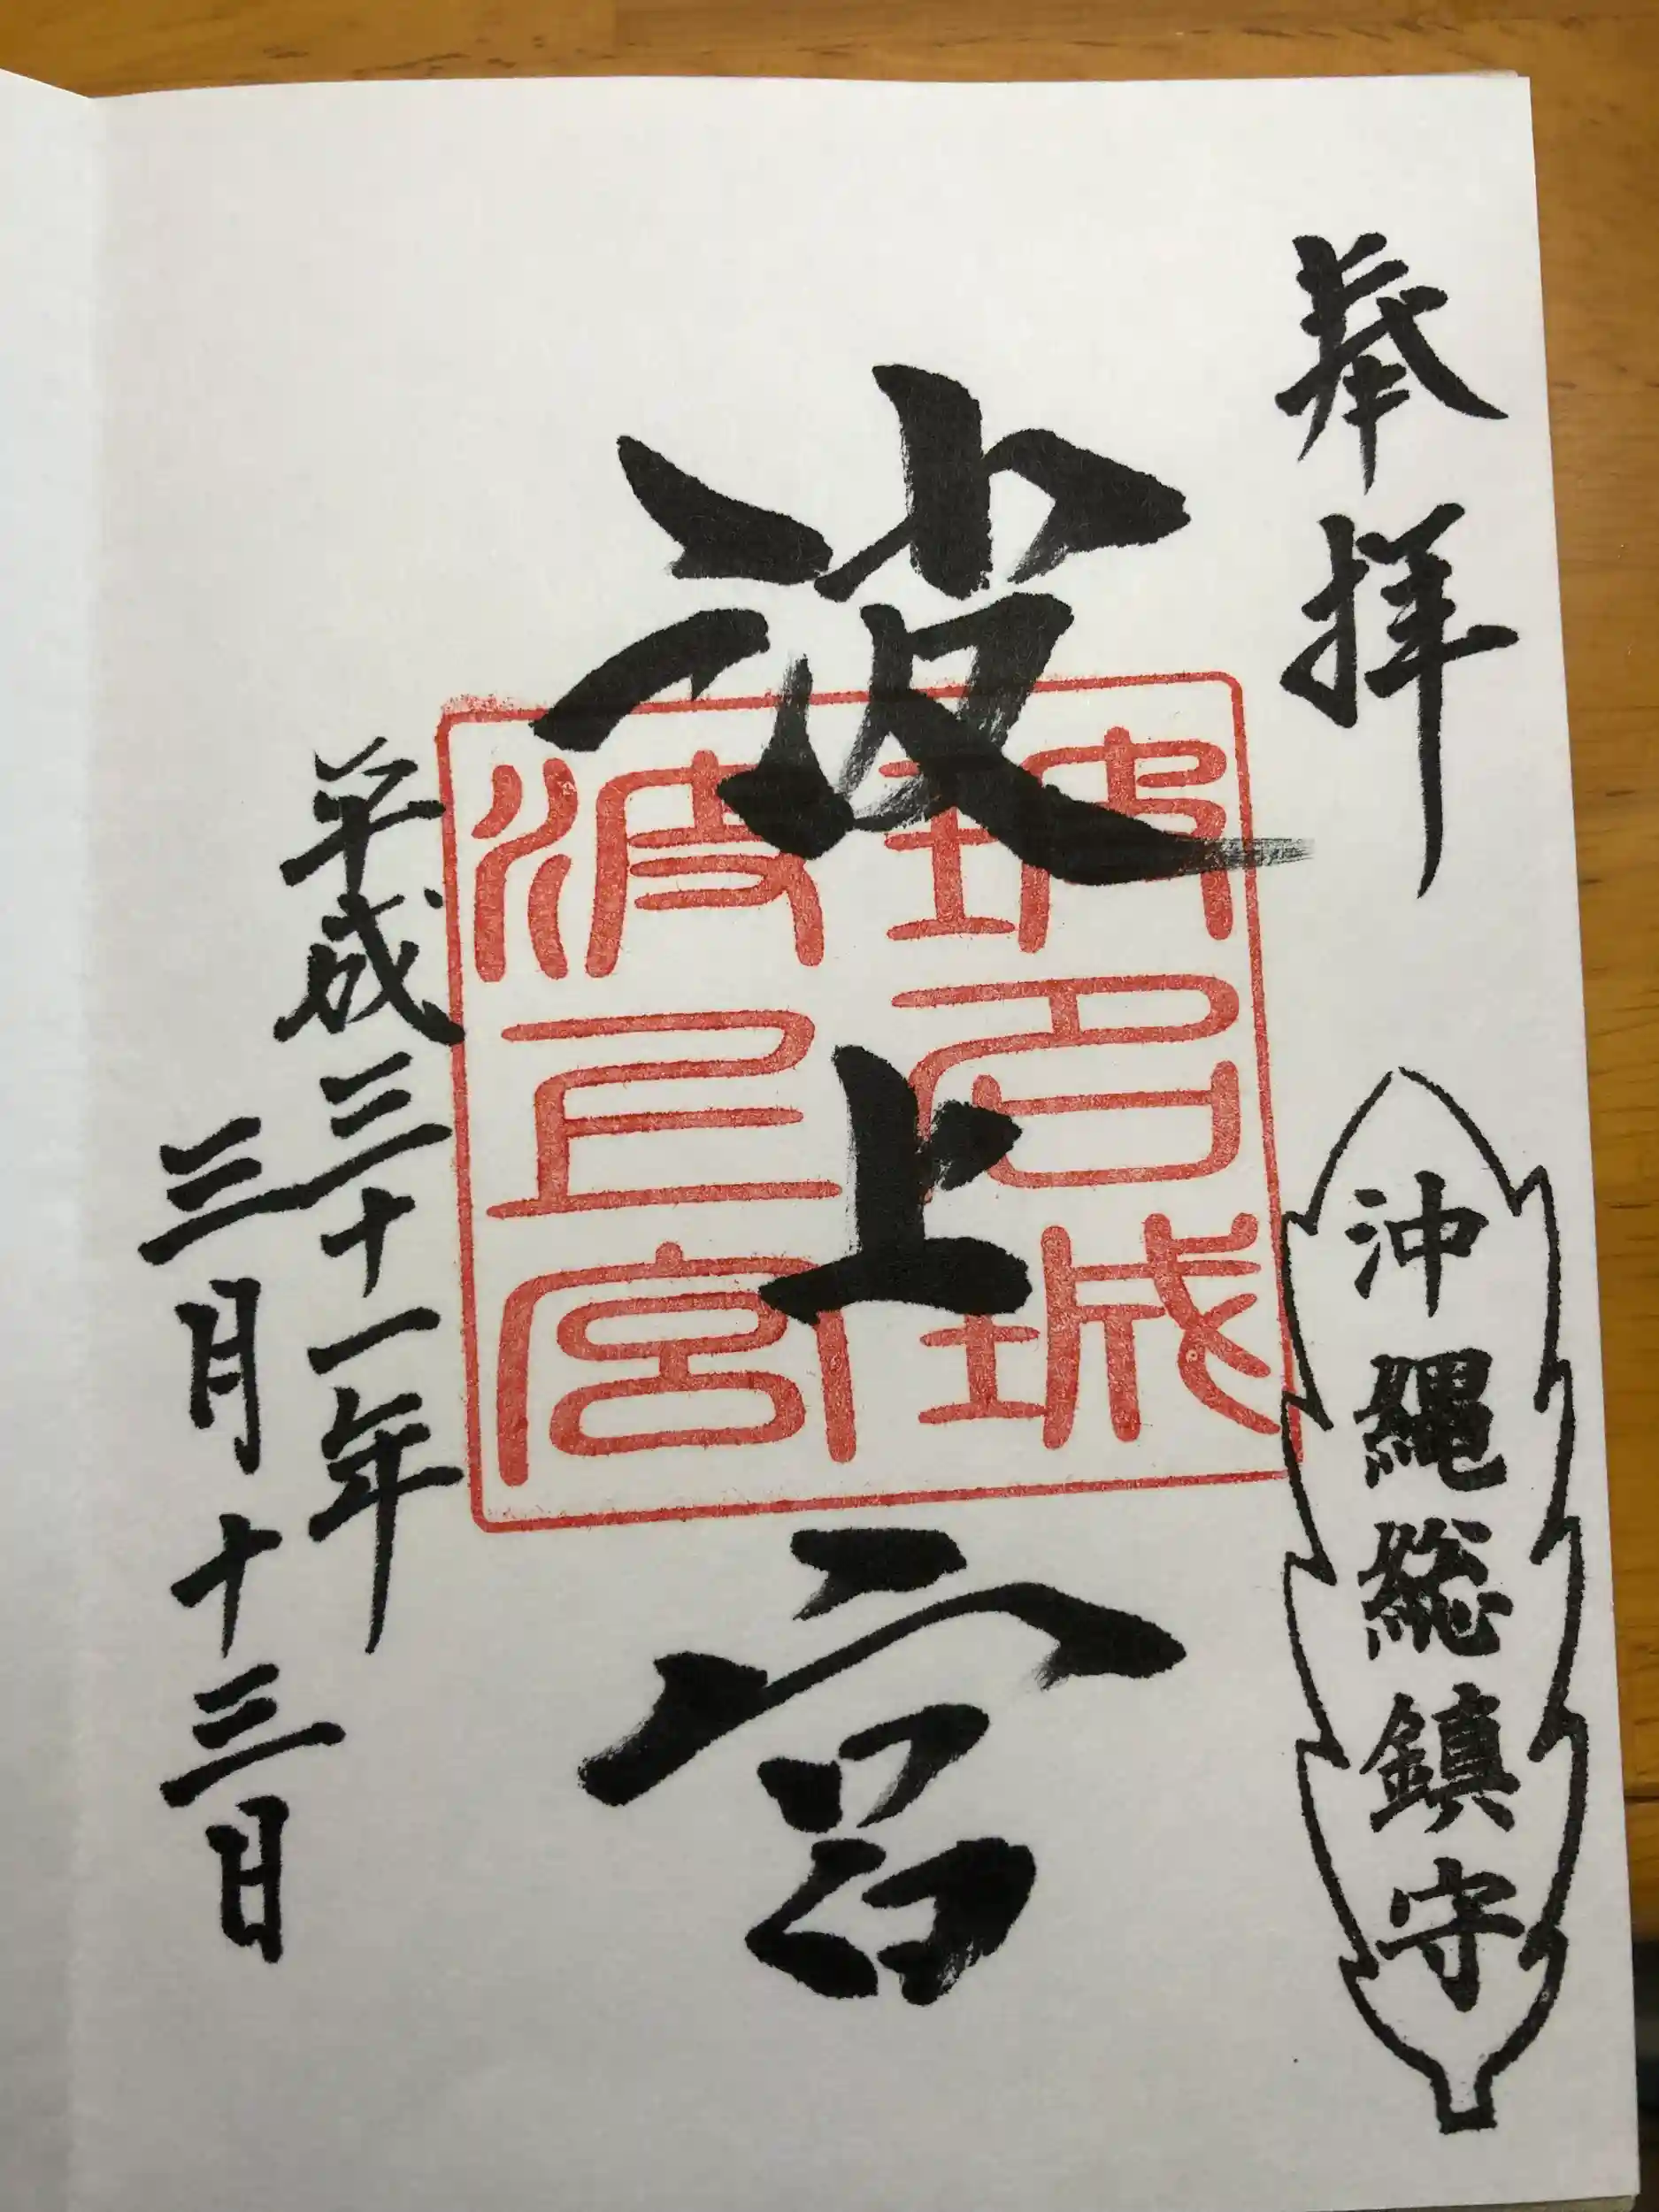 奉拝
沖縄総鎮守
波上宮
玻名城
波上宮
平成三十一年
三月十三日